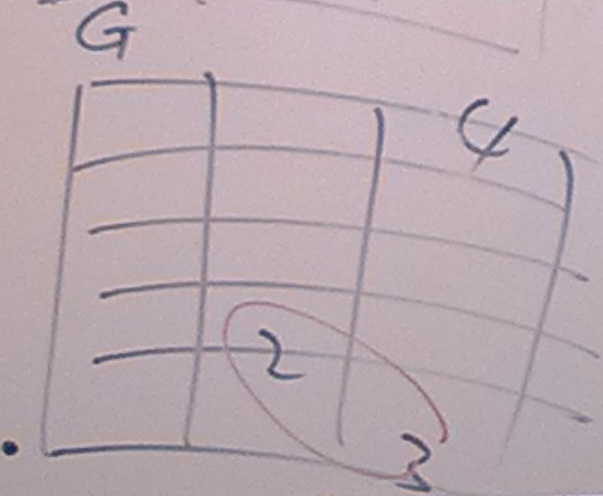 G
4
2
3